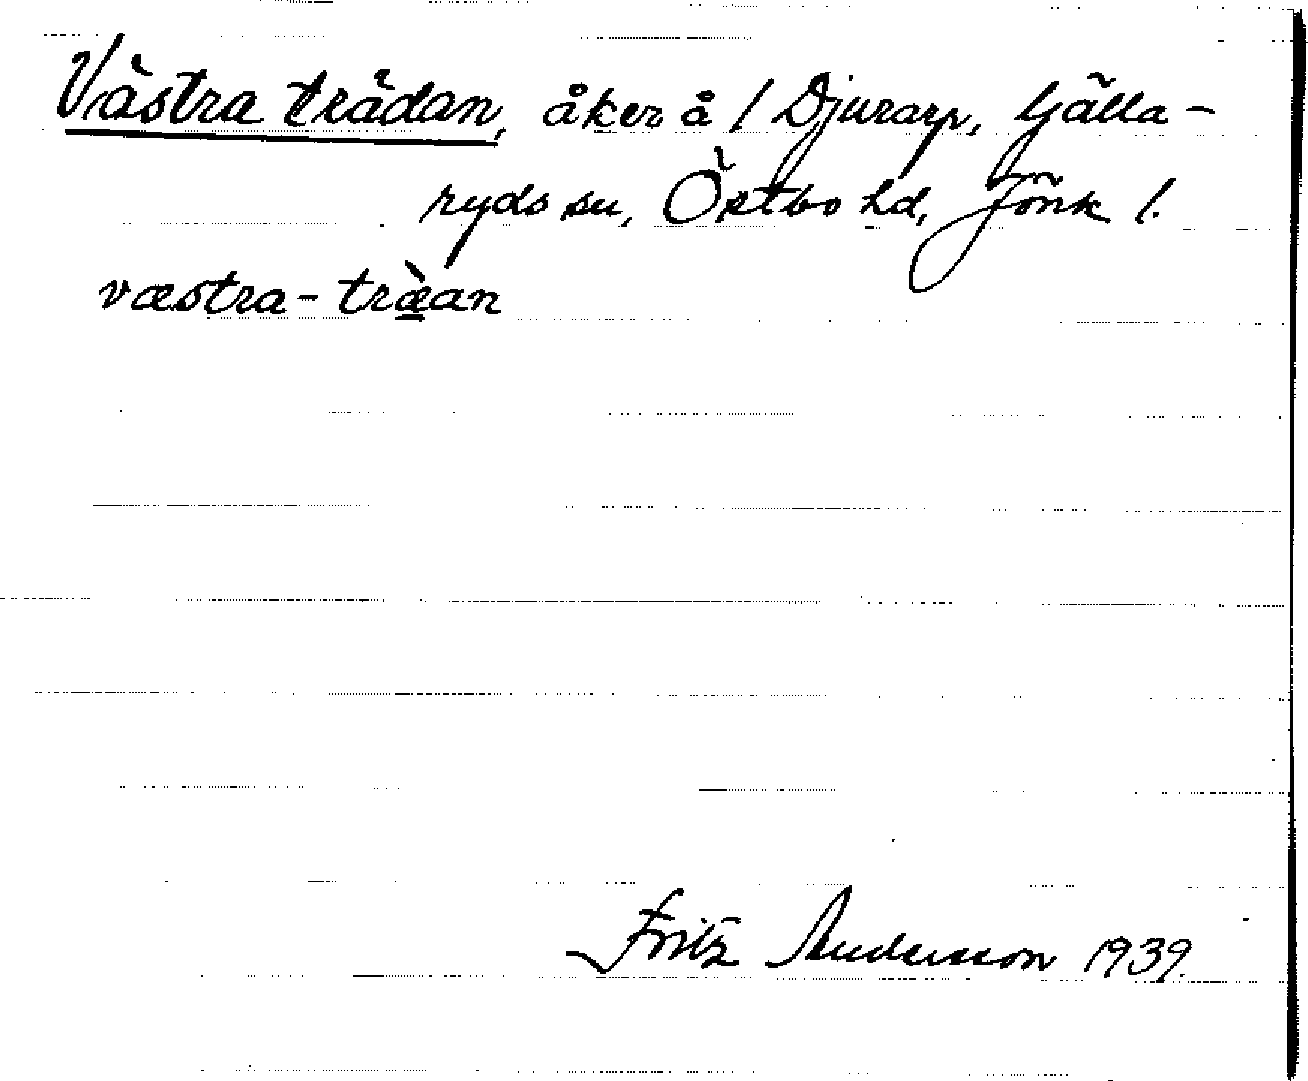 Västra trädan, åker å 1 Djurarp, Gälla-
ryds sn, Östbo hd, Jönk l.
væstra-træ̀an
Fritz Andersson 1939.